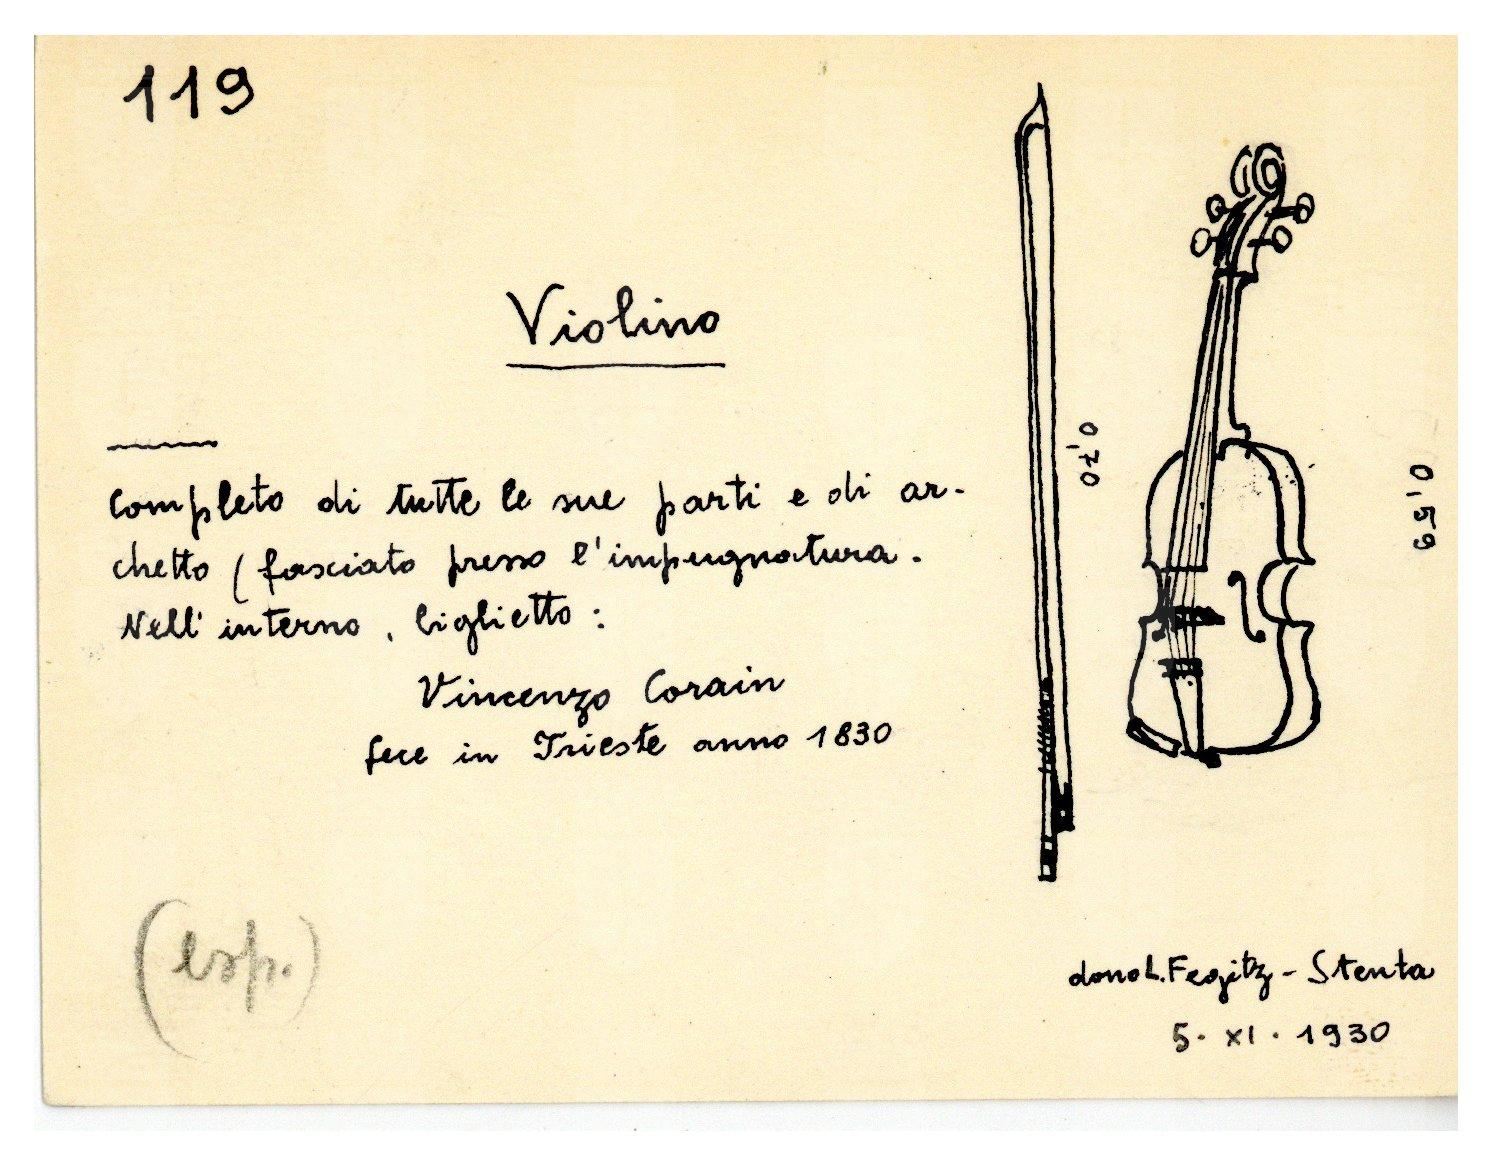 119
Violino
completo di tutte le sue parti e di ar-
chetto (fasciato presso l'impugnatura.
Nell'interno, biglietto:
Vincenzo Corain
fece in Trieste anno 1830
0,70
0,59
(esp.)
dono L. Fegitz - Stenta
5. XI. 1930